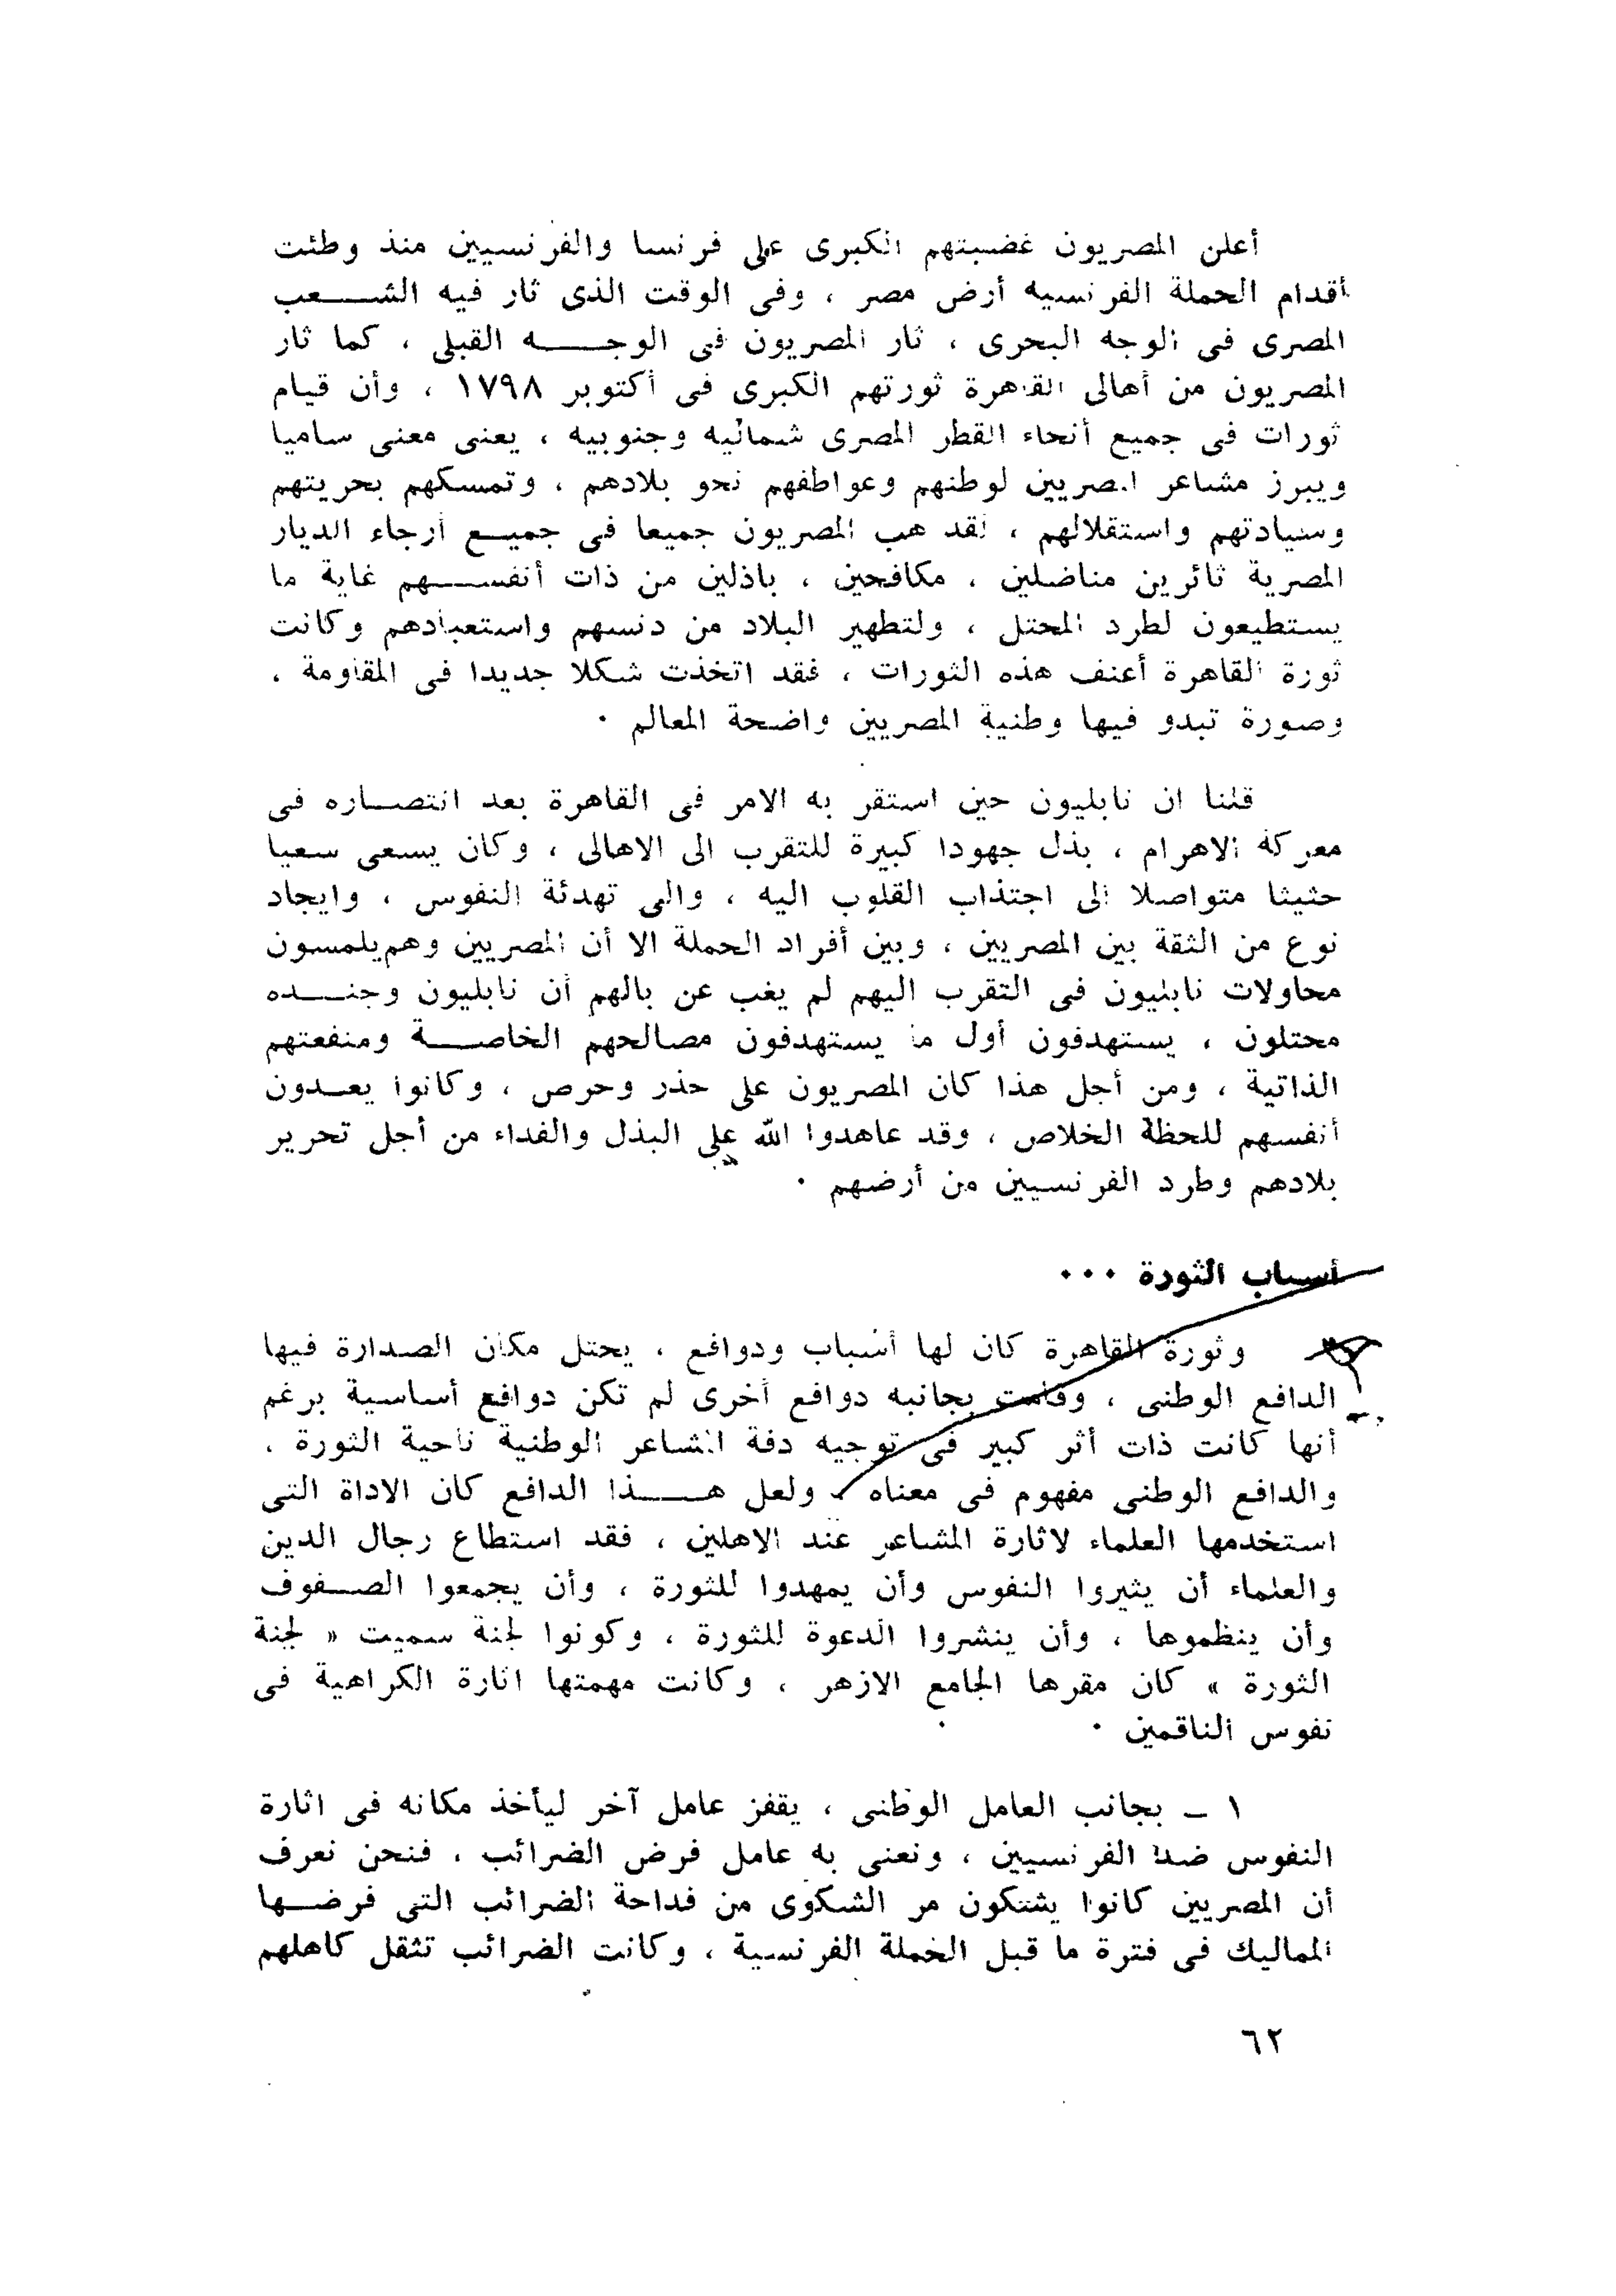 أعلن المصريون غضبتهم الكبرى على فرنسا والفرنسيين منذ وطئت
أقدام الحملة الفرنسيه أرض مصر ، وفى الوقت الذى ثار فيه الشعب
المصرى فى الوجه البحرى ، ثار المصريون فى الوجه القبلى ، كما ثار
المصريون من أهالى القاهرة ثورتهم الكبرى فى أكتوبر ١٧٩٨ ، وأن قيام
ثورات فى جميع أنحاء القطر المصرى شماليه وجنوبيه ، يعنى معنى ساميا
ويبرز مشاعر المصريين لوطنهم وعواطفهم نحو بلادهم ، وتمسكهم بحريتهم
وسيادتهم واستقلالهم ، لقد هب المصريون جميعا فى جميع أرجاء الديار
المصرية ثائرين مناضلين ، مكافحين ، باذلين من ذات أنفسهم غاية ما
يستطيعون لطرد المحتل ، ولتطهير البلاد من دنسهم واستعبادهم وكانت
ثورة القاهرة أعنف هذه الثورات ، فقد اتخذت شكلا جديدا فى المقاومة ،
وصورة تبدو فيها وطنية المصريين واضحة المعالم ٠
قلنا ان نابليون حين استقر به الامر فى القاهرة بعد انتصاره فى
معركة الاهرام ، بذل جهودا كبيرة للتقرب الى الاهالى ، وكان يسعى سعيا
حثيثا متواصلا الى اجتذاب القلوب اليه ، والى تهدئة النفوس ، وايجاد
نوع من الثقة بين المصريين ، وبين أفراد الحملة الا أن المصريين وهم يلمسون
محاولات نابليون فى التقرب اليهم لم يغب عن بالهم أن نابليون وجنده
محتلون ، يستهدفون أول ما يستهدفون مصالحهم الخاصة ومنفعتهم
الذاتية ، ومن أجل هذا كان المصريون على حذر وحرص ، وكانوا يعدون
أنفسهم للحظة الخلاص ، وقد عاهدوا الله على البذل والفداء من أجل تحرير
بلادهم وطرد الفرنسيين من أرضهم ٠
أسباب الثورة ٠٠٠
وثورة القاهرة كان لها أسباب ودوافع ، يحتل مكان الصدارة فيها
الدافع الوطنى ، وقامت بجانبه دوافع أخرى لم تكن دوافع أساسية برغم
أنها كانت ذات أثر كبير فى توجيه دفة المشاعر الوطنية ناحية الثورة ،
والدافع الوطنى مفهوم فى معناه ، ولعل هذا الدافع كان الاداة التى
استخدمها العلماء لاثارة المشاعر عند الاهلين ، فقد استطاع رجال الدين
والعلماء أن يثيروا النفوس وأن يمهدوا للثورة ، وأن يجمعوا الصفوف
وأن ينظموها ، وأن ينشروا الدعوة للثورة ، وكونوا لجنة سميت « لجنة
الثورة » كان مقرها الجامع الازهر ، وكانت مهمتها اثارة الكراهية فى
نفوس الناقمين ٠
١ – بجانب العامل الوطنى ، يقفز عامل آخر ليأخذ مكانه فى اثارة
النفوس ضد الفرنسيين ، ونعنى به عامل فرض الضرائب ، فنحن نعرف
أن المصريين كانوا يشتكون مر الشكوى من فداحة الضرائب التى فرضها
المماليك فى فترة ما قبل الحملة الفرنسية ، وكانت الضرائب تثقل كاهلهم
٦٢